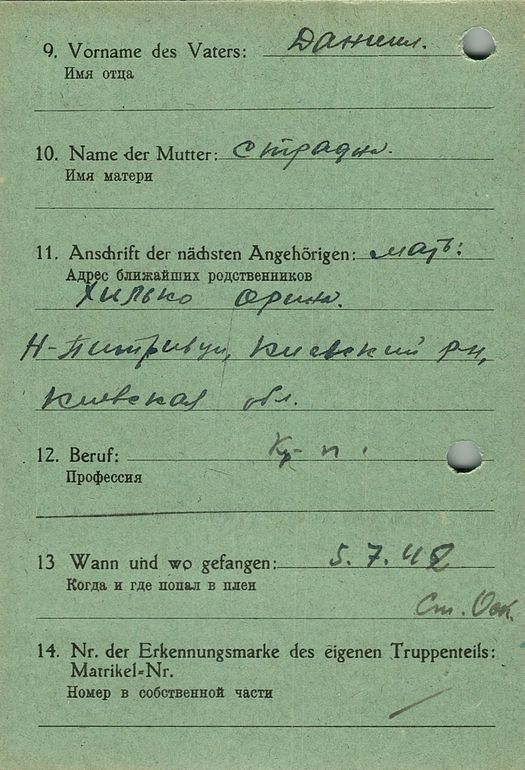 9. Vorname des Vaters: Данил.
Имя отца
10. Name der Mutter: Страдн.
Имя матери
11. Anschrift der nächsten Angehörigen: мать:
Адрес ближайших родственников
Хилько Орина.
Н-Питривци, Киевский р-н,
Киевская обл.
12. Beruf: Кр-н.
Профессия
13 Wann und wo gefangen: 5.7.42
Когда и где попал в плен
Ст. Оск.
14. Nr. der Erkennungsmarke des eigenen Truppenteils:
Matrikel-Nr.
Номер в собственной части